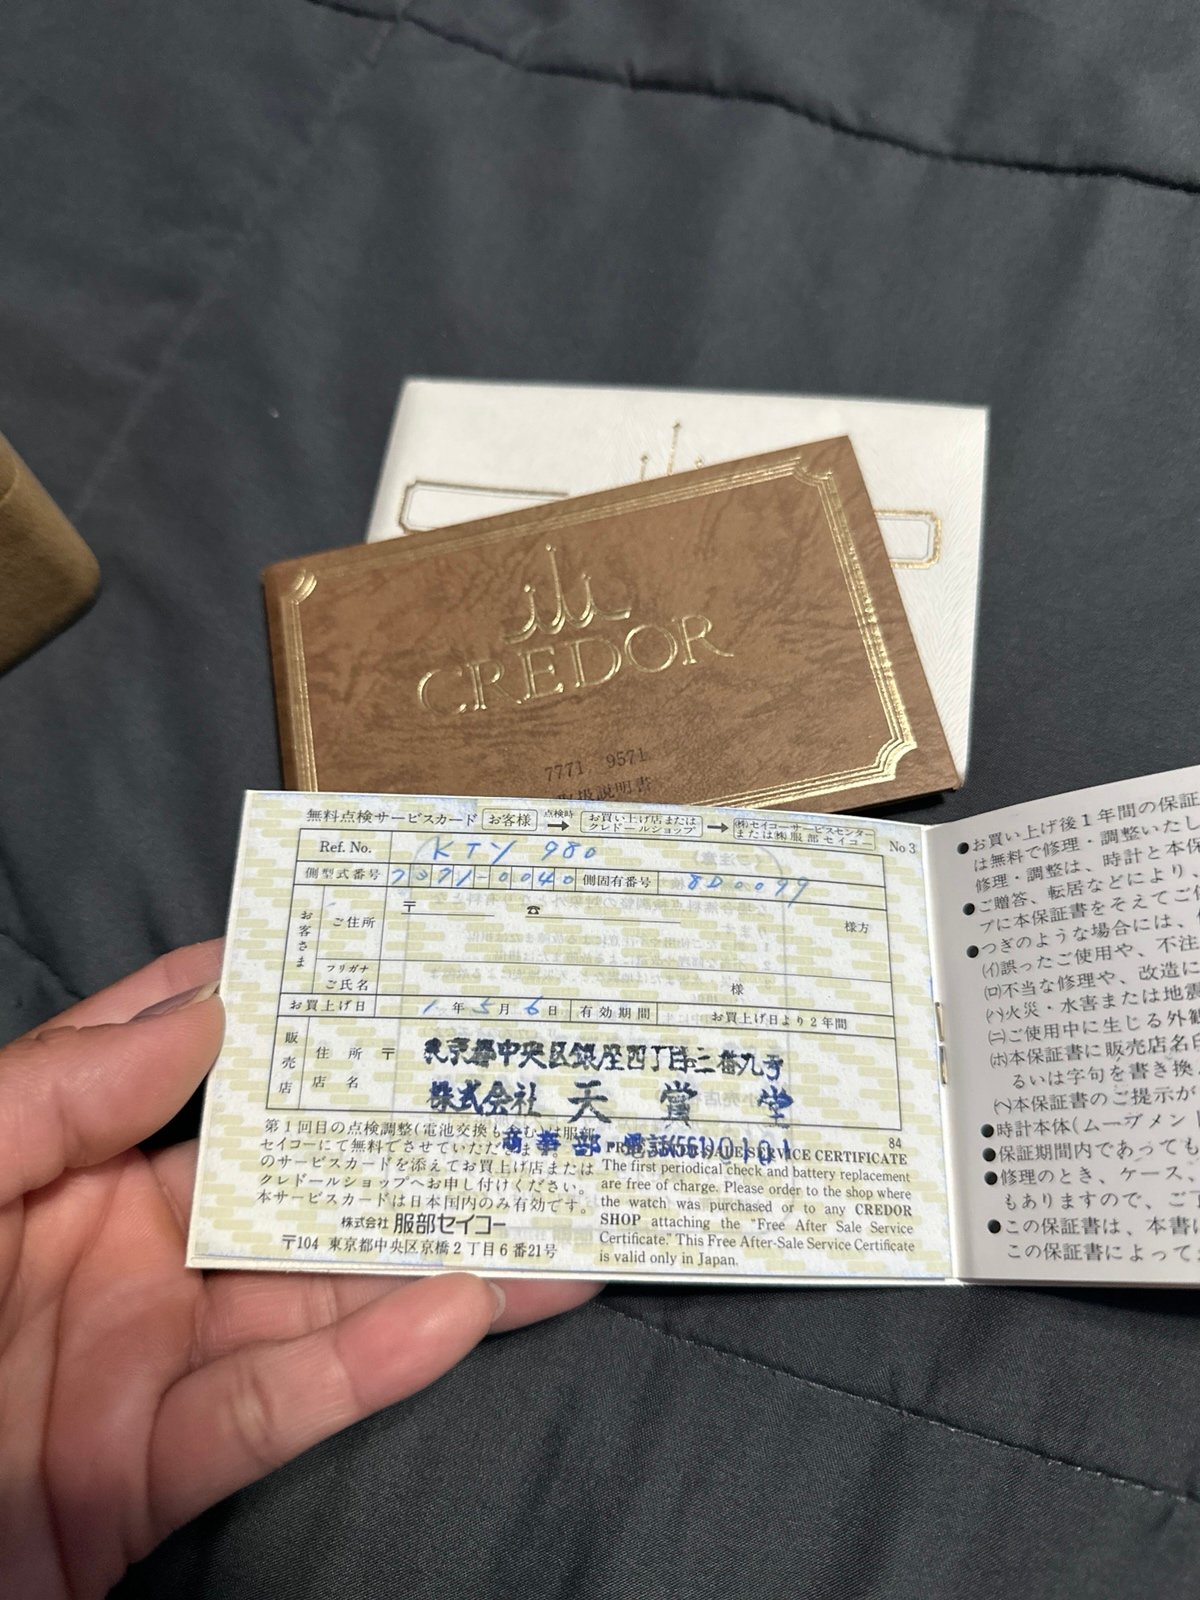 CREDOR
7771 9571
取扱説明書
無料点検サービスカード お客様 点検時 → お買い上げ店または クレドールショップ → ㈱セイコーサービスセンター または㈱服部セイコー No 3
Ref. No. KTY 980
側型式番号 7771-0040 側固有番号 8D0099
お客さま
ご住所 〒 ☎ 様方
フリガナ
ご氏名 様
お買上げ日 1年5月6日 有効期間 お買上げ日より2年間
販売店
住所 〒 東京都中央区銀座四丁目三番九号
店名 株式会社 天賞堂
商事部・電話(561)0101
84
第1回目の点検調整(電池交換も含む)は服部
セイコーにて無料でさせていただきます
のサービスカードを添えてお買上げ店または
クレドールショップへお申し付けください。
本サービスカードは日本国内のみ有効です。
株式会社 服部セイコー
〒104 東京都中央区京橋2丁目6番21号
SERVICE CERTIFICATE
The first periodical check and battery replacement
are free of charge. Please order to the shop where
the watch was purchased or to any CREDOR
SHOP attaching the "Free After Sale Service
Certificate." This Free After-Sale Service Certificate
is valid only in Japan.
●お買い上げ後1年間の保証
は無料で修理・調整いたし
修理・調整は、時計と本保
●ご贈答、転居などにより、
プに本保証書をそえてご
●つぎのような場合には、
(イ)誤ったご使用や、不注
(ロ)不当な修理や、改造に
(ハ)火災・水害または地震
(ニ)ご使用中に生じる外観
(ホ)本保証書に販売店名
るいは字句を書き換
(ヘ)本保証書のご提示が
●時計本体(ムーブメント
●保証期間内であっても
●修理のとき、ケース、
もありますので、ご
●この保証書は、本書に
この保証書によって